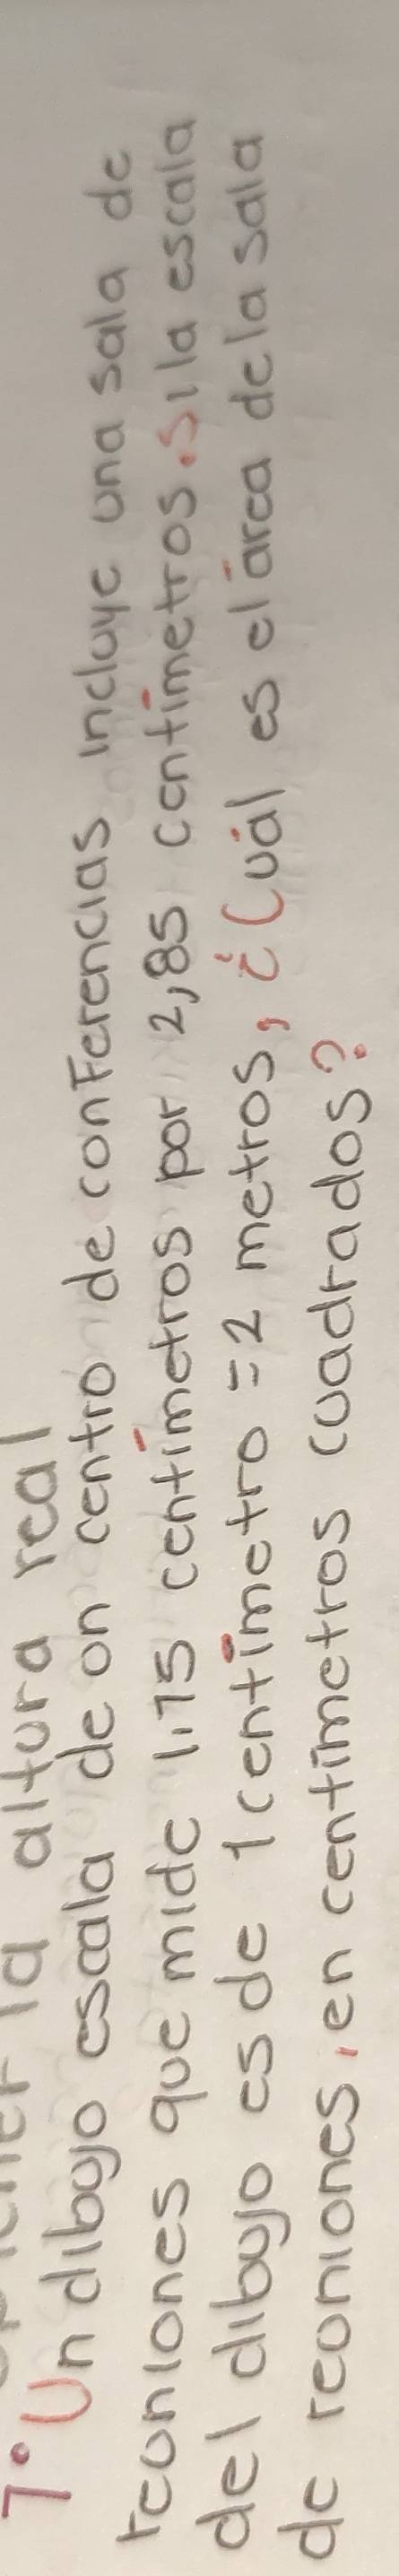 la altura real
7° Un dibujo escala de on centro de conferencias incluye una sala de
reoniones que mide 1.75 centímetros por 2,85 centímetros. Si la escala
del dibujo es de 1 centímetro = 2 metros, ¿Cuál es el área de la sala
de reoniones, en centimetros cuadrados?